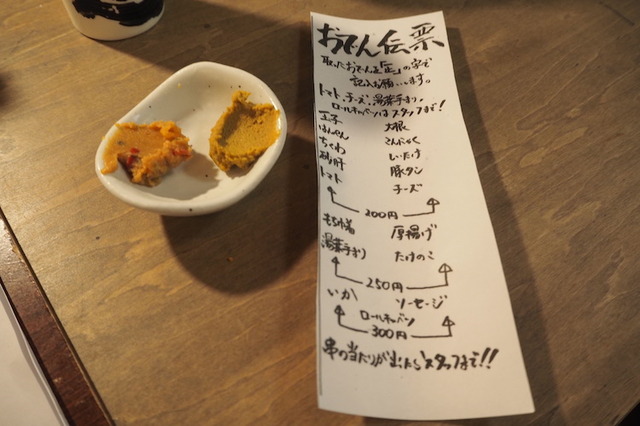 おでん伝票
取ったおでんを「正」の字で
記入お願いします。
トマト、チーズ、湯葉手まり、
ロールキャバツはスタッフまで!
玉子 大根
はんぺん こんにゃく
ちくわ しいたけ
砂肝 豚タン
トマト チーズ
200円
もち巾着 厚揚げ
湯葉手まり たけのこ
250円
いか ソーセージ
ロールキャバツ
300円
串の当たりが出たらスタッフまで!!